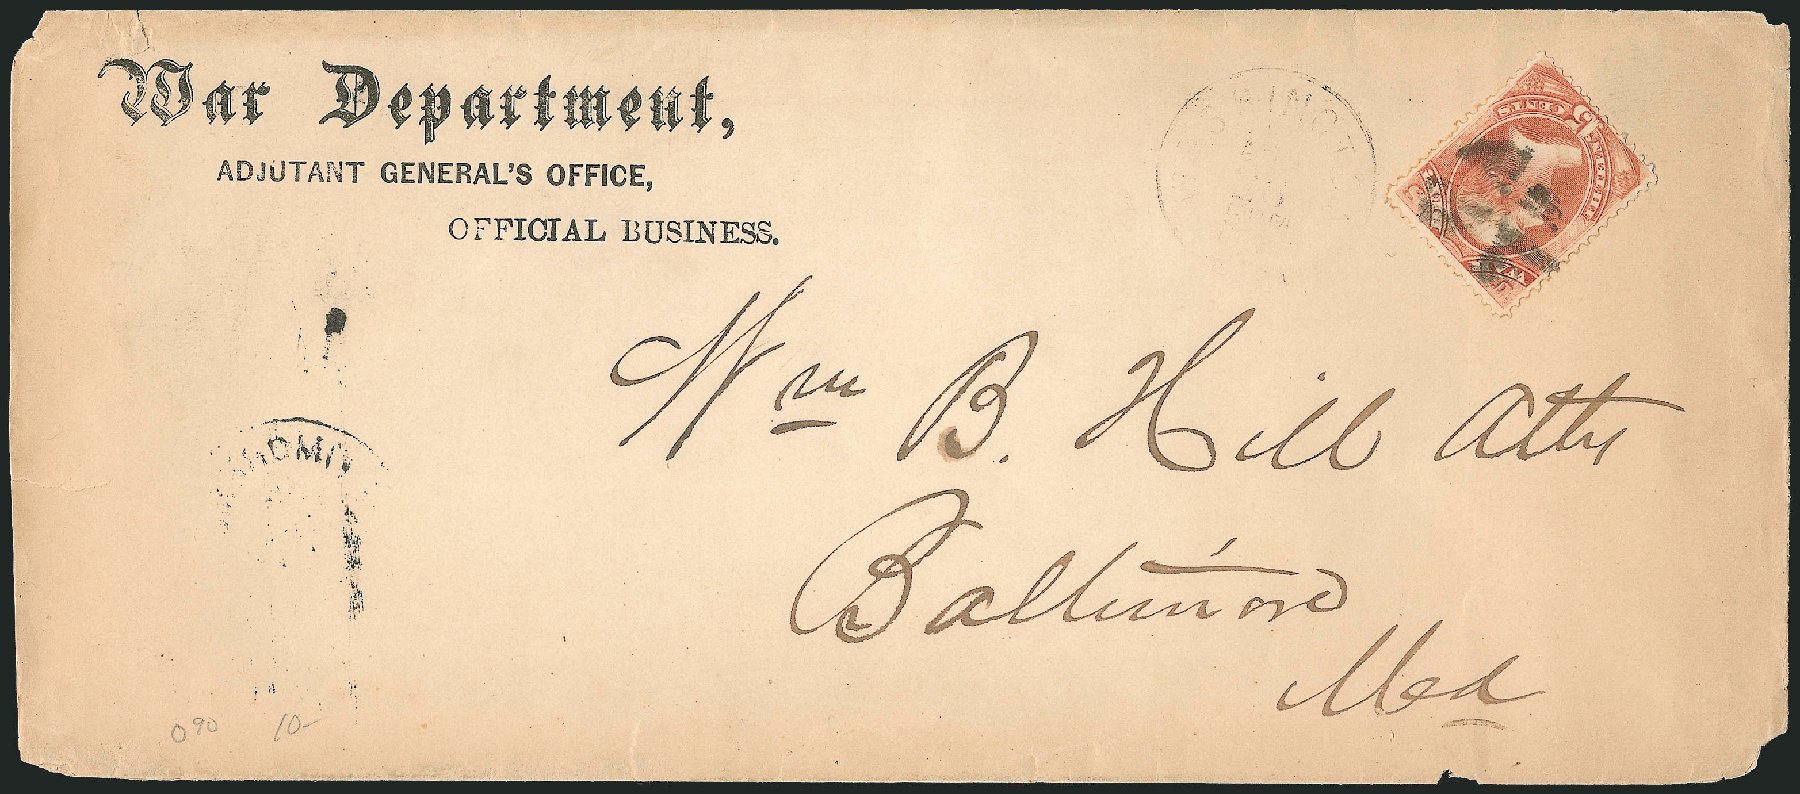 War Department,
ADJUTANT GENERAL'S OFFICE,
OFFICIAL BUSINESS.
CENTS
WAR
Wm B. Hill Atty
Baltimore
Md
090 10-